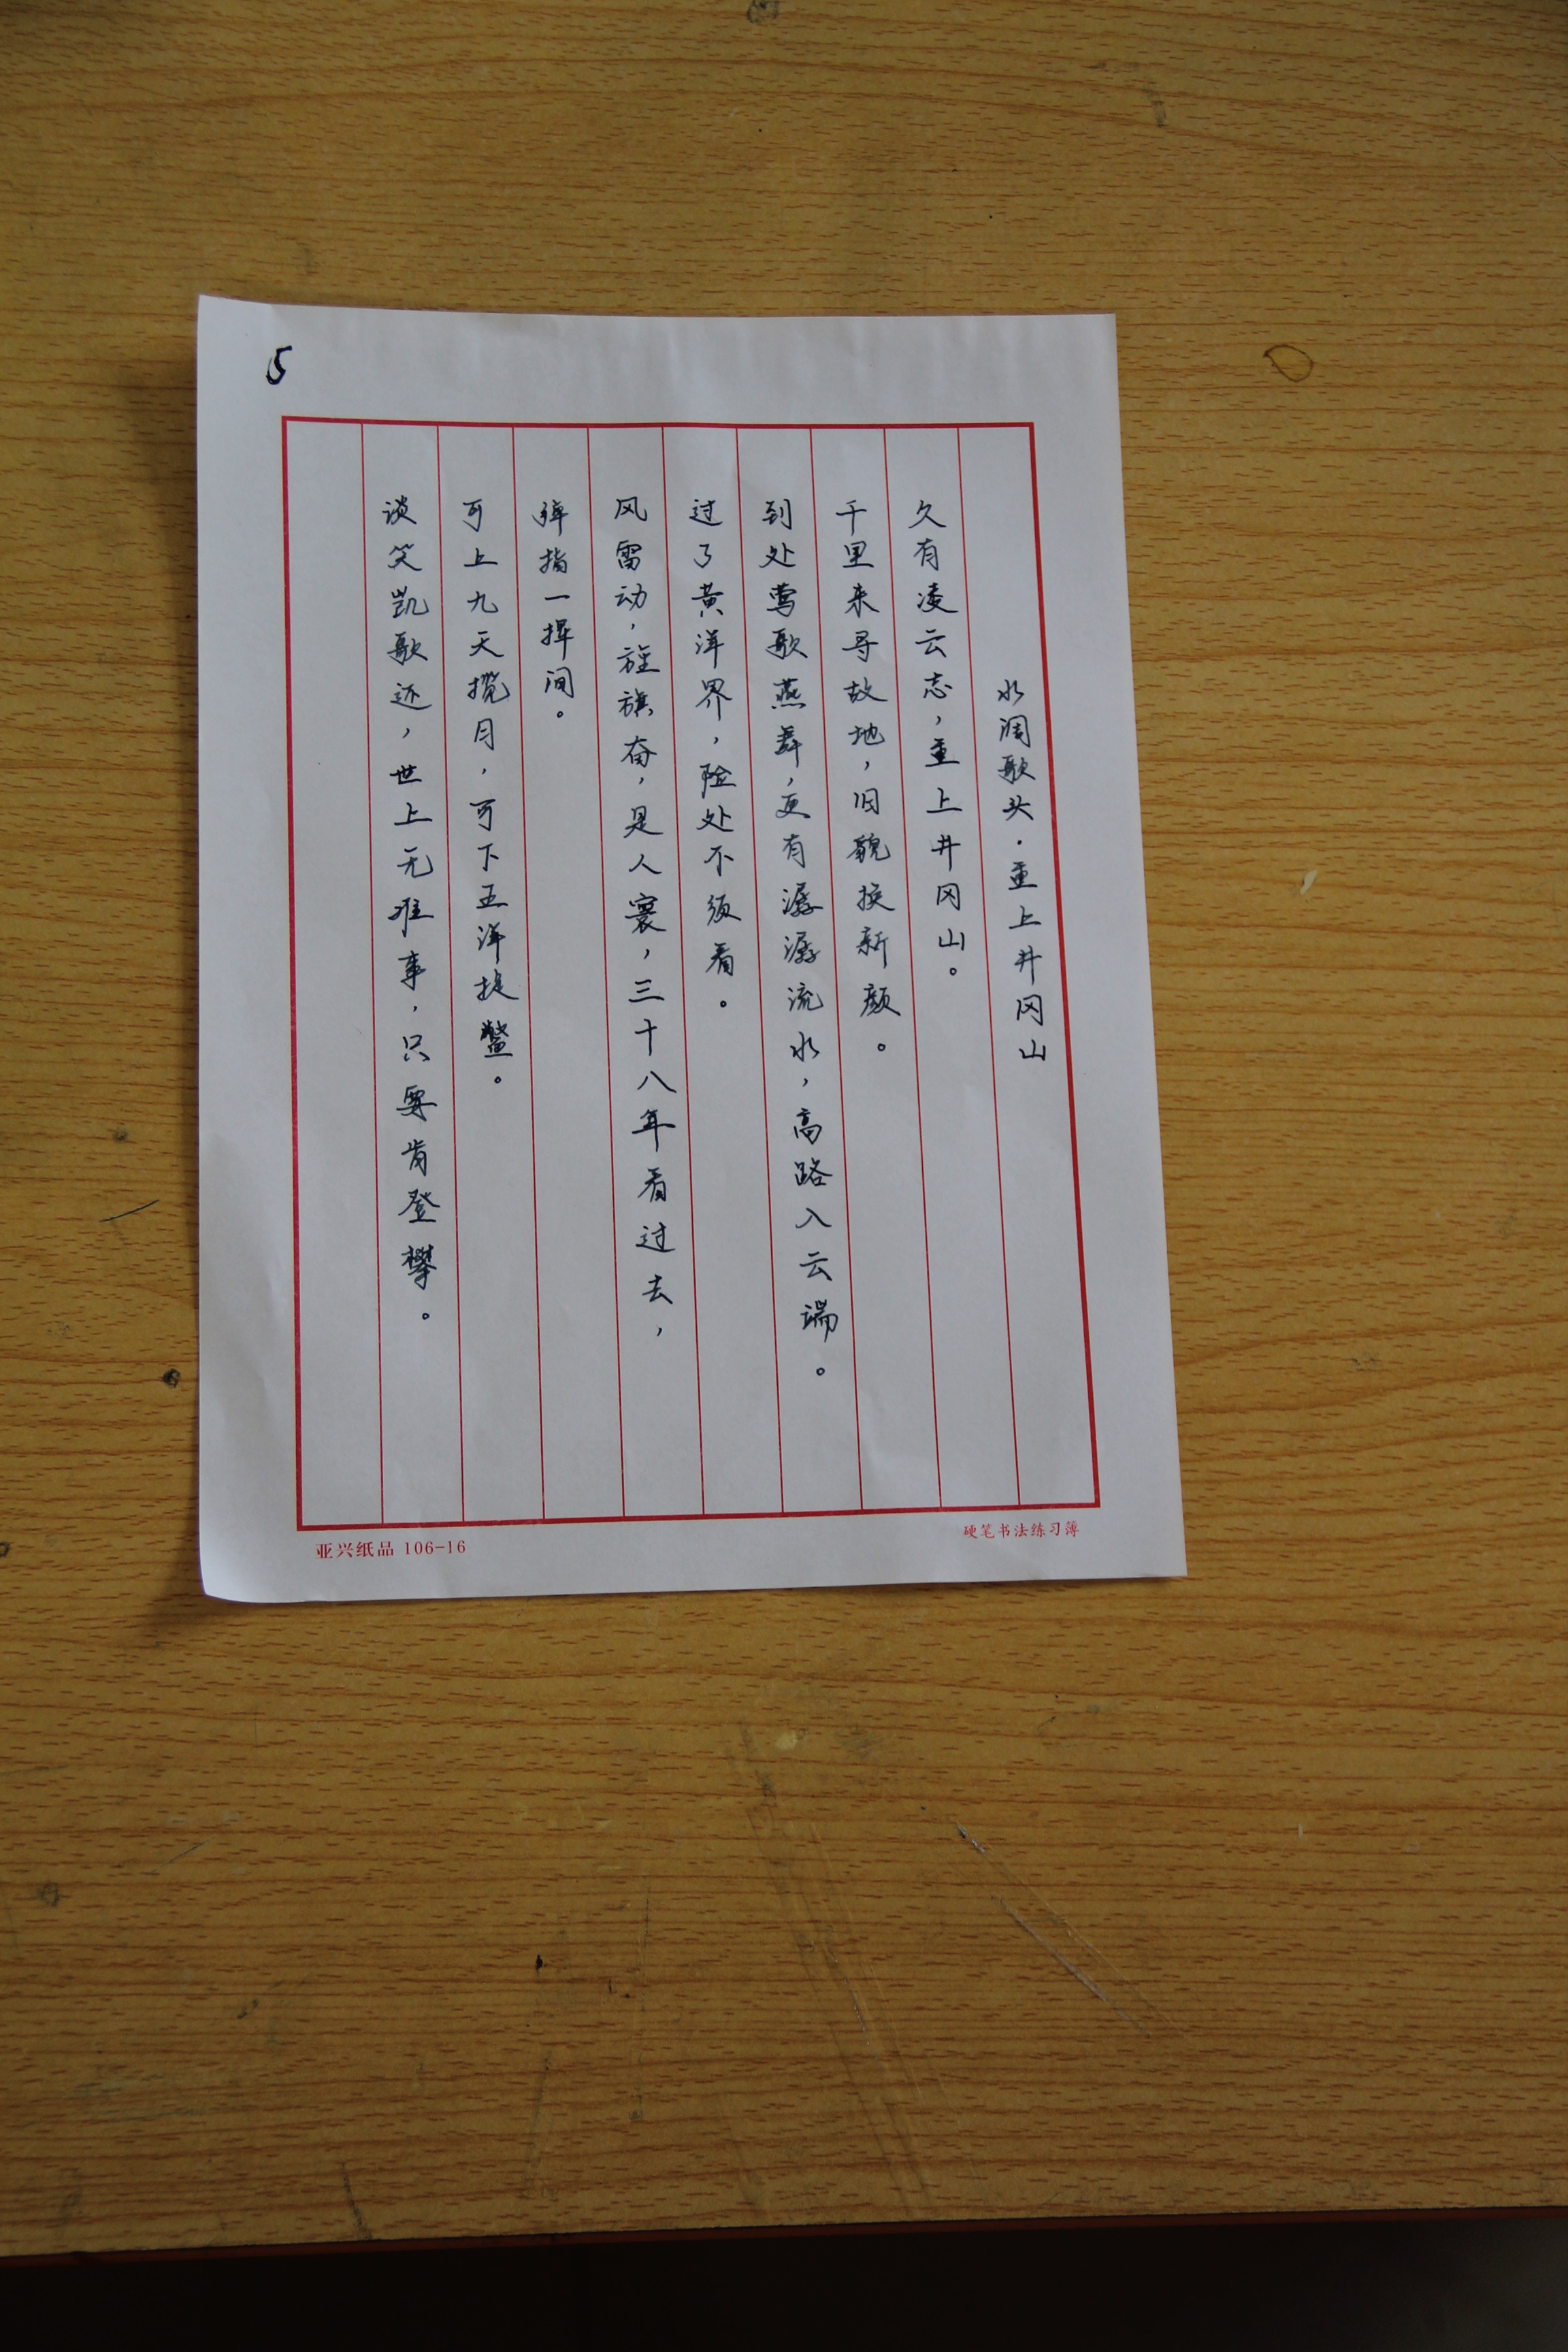 5
水调歌头·重上井冈山
久有凌云志，重上井冈山。
千里来寻故地，旧貌换新颜。
到处莺歌燕舞，更有潺潺流水，高路入云端。
过了黄洋界，险处不须看。
风雷动，旌旗奋，是人寰，三十八年看过去，
弹指一挥间。
可上九天揽月，可下五洋捉鳖。
谈笑凯歌还，世上无难事，只要肯登攀。
亚兴纸品 106-16
硬笔书法练习簿